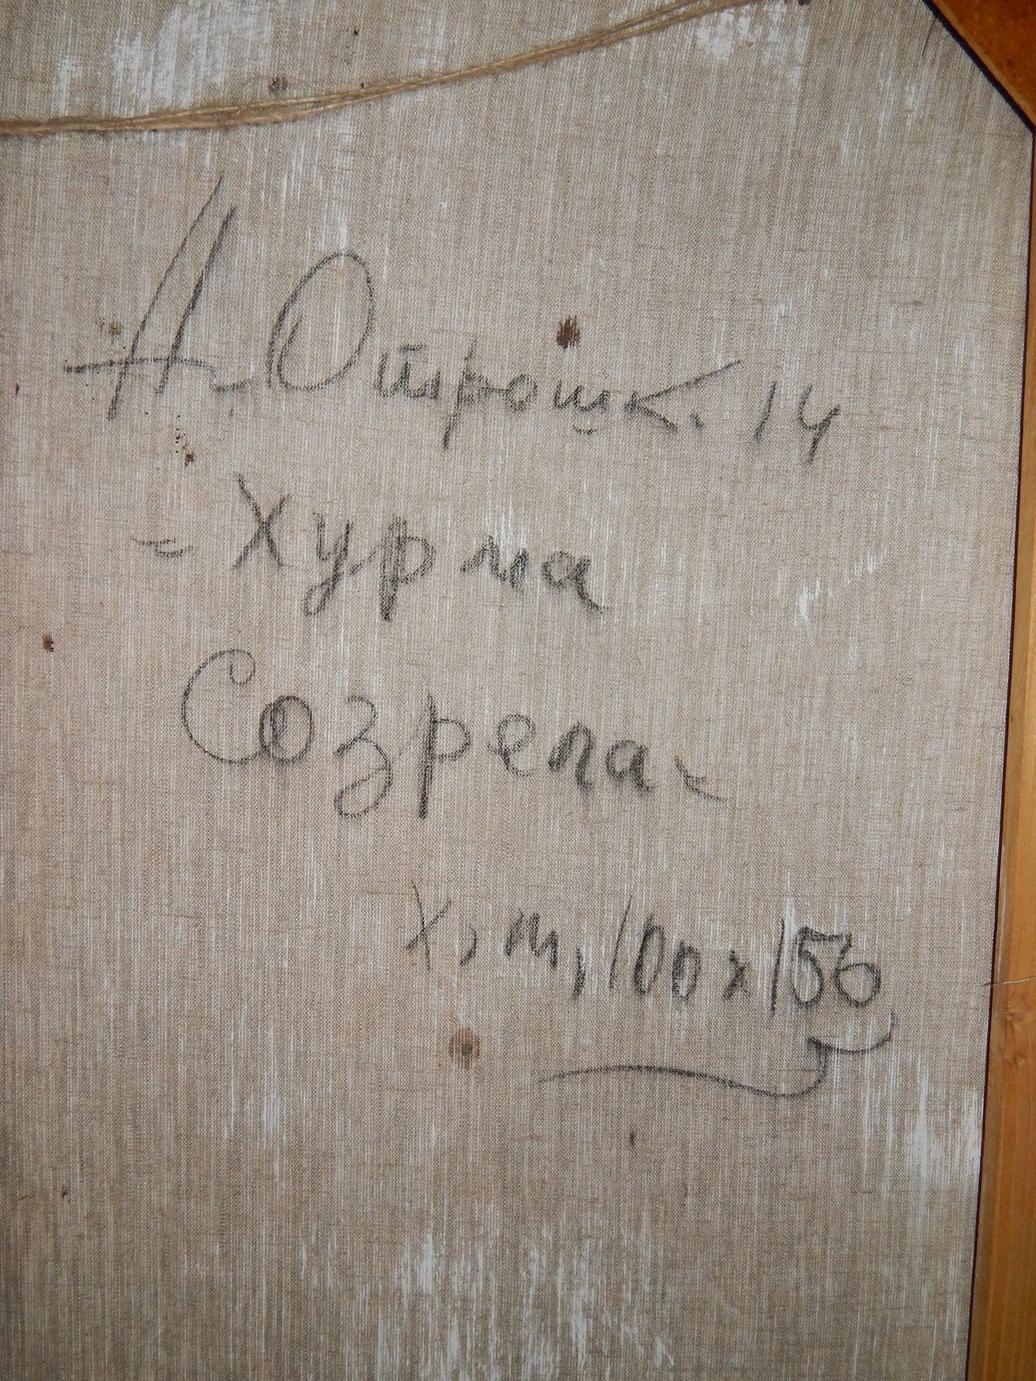 А. Отрошк. 14
= Хурма
Созрела =
х, м, 100 x 150